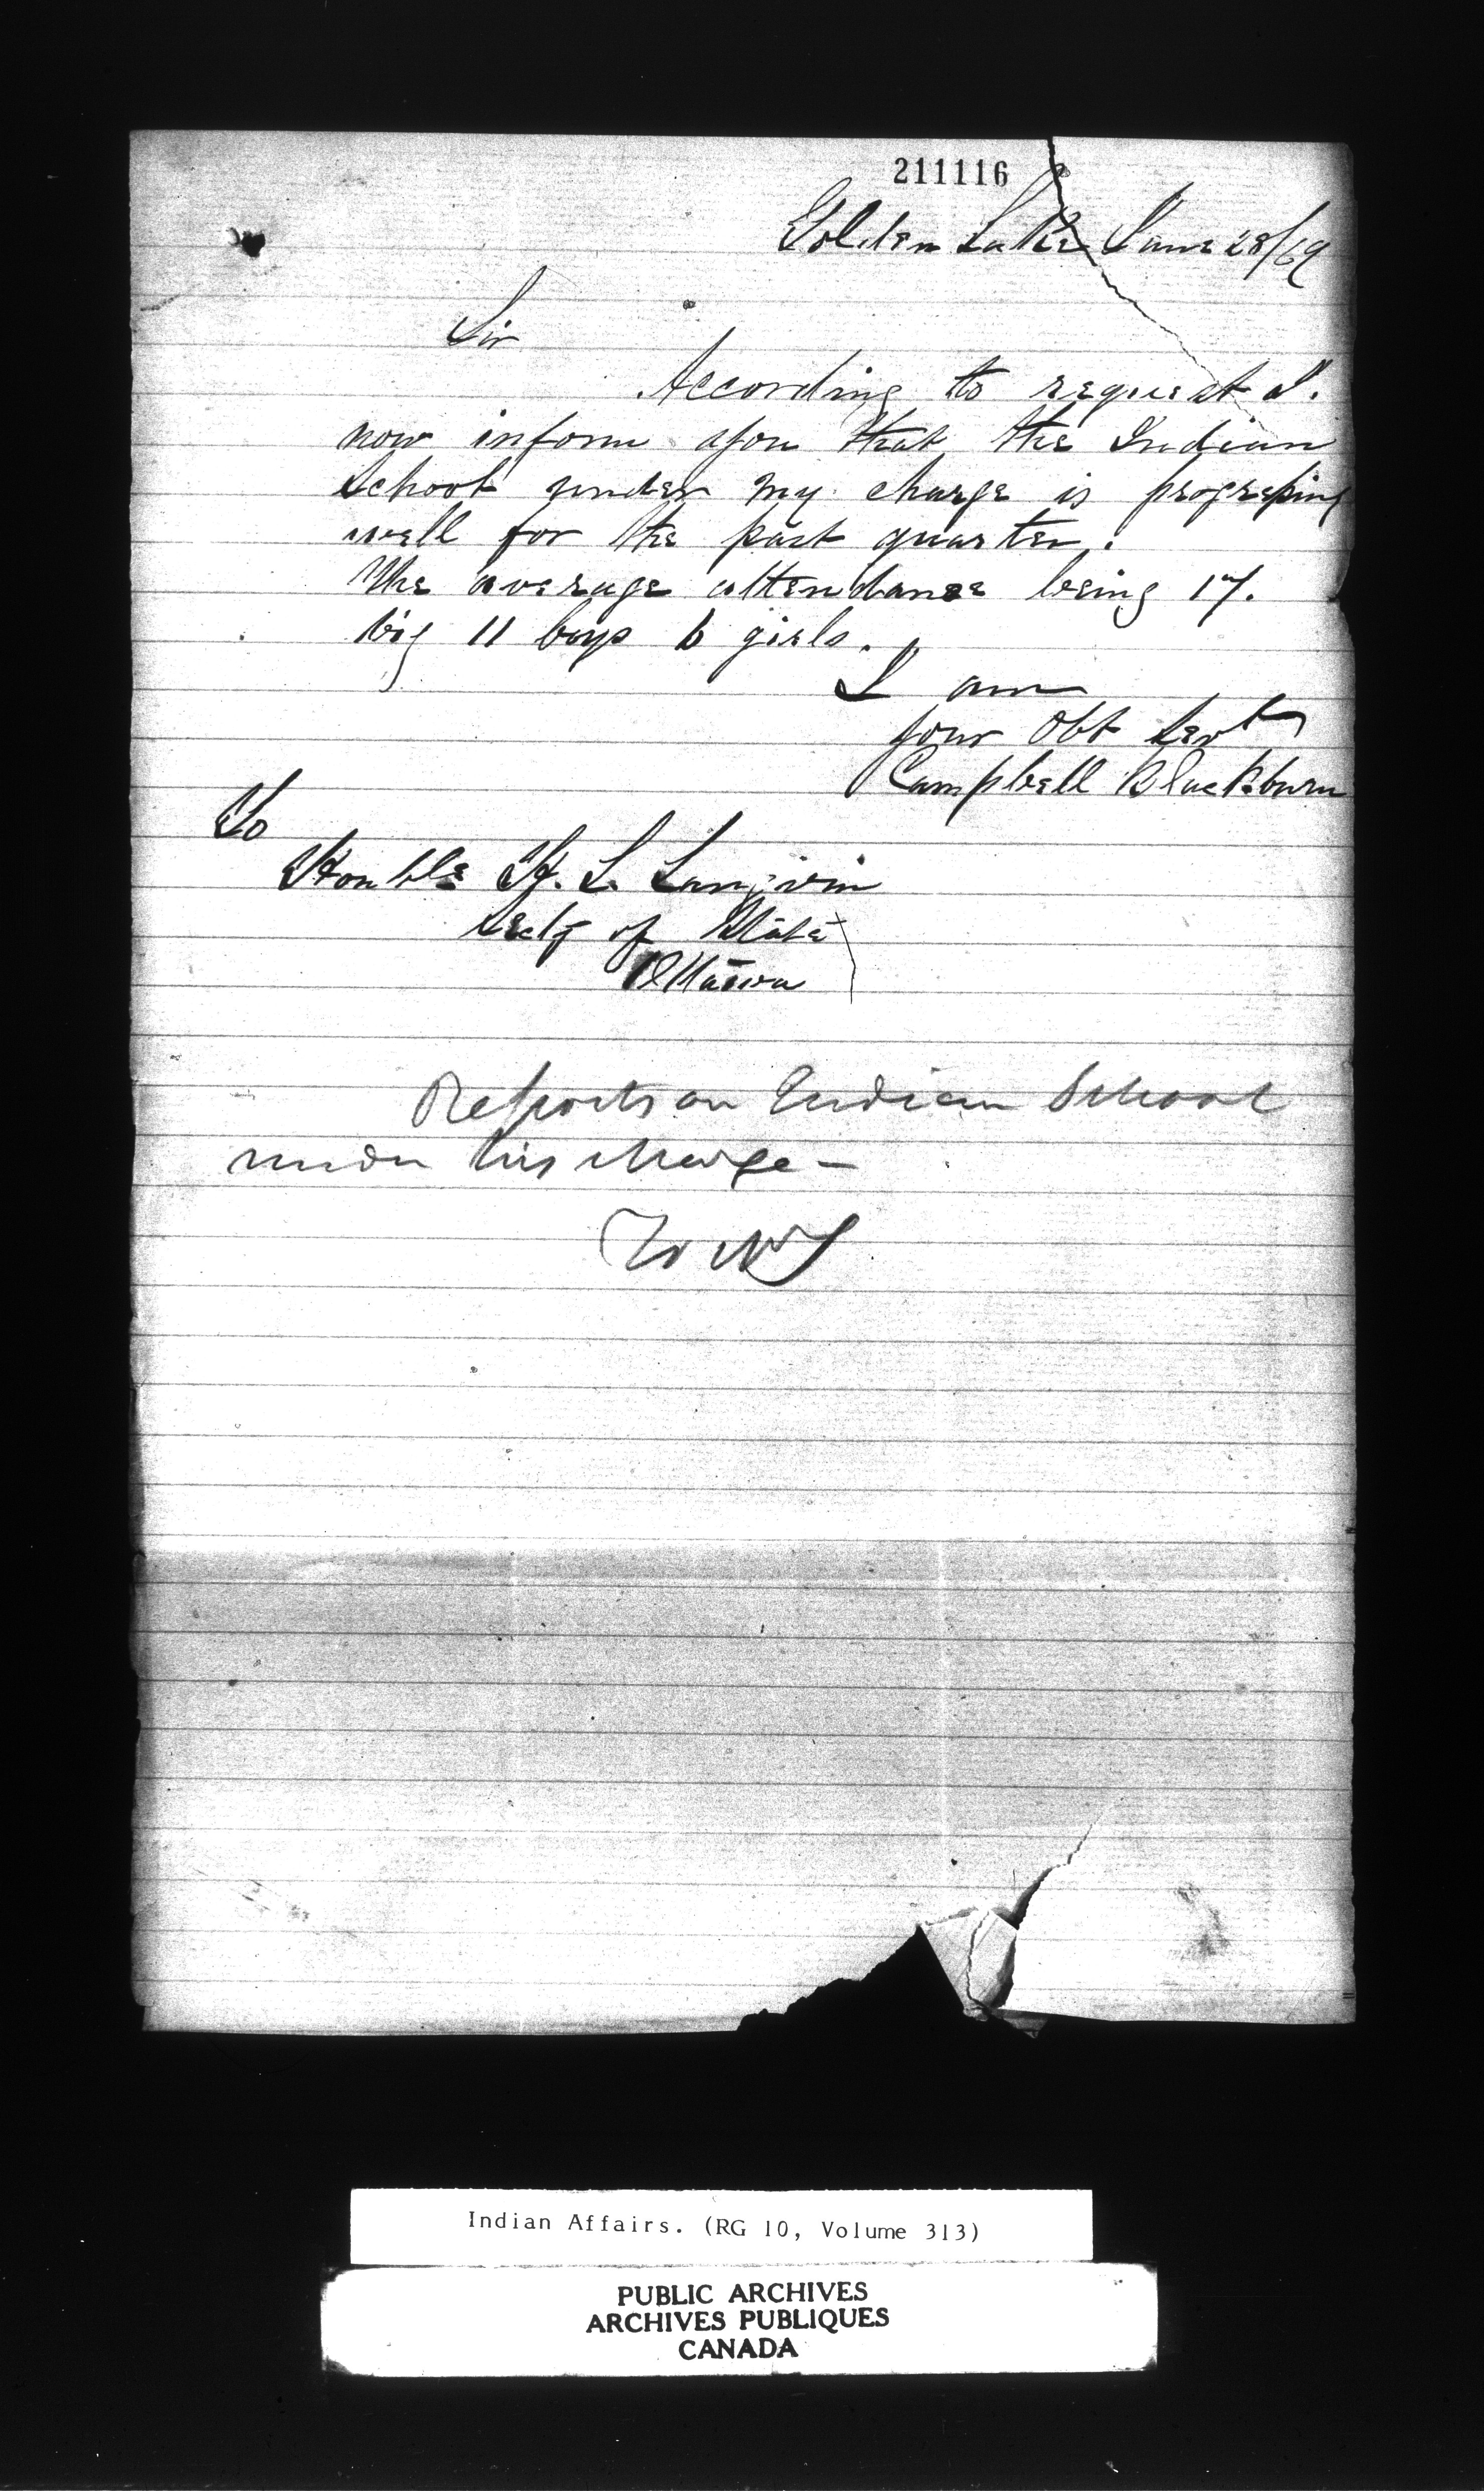 211116
Golden Lake June 28/69
Sir
According to request I.
now inform you that the Indian
School under my charge is progressing
well for the past quarter.
The average attendance being 17.
viz 11 boys 6 girls.
I am
your Obt Servt
Campbell Blackburn
To
Honble H. L. Langivin
Secty of State
Ottawa
Reports on Indian School
under his charge –
Indian Affairs. (RG 10, Volume 313)
PUBLIC ARCHIVES
ARCHIVES PUBLIQUES
CANADA